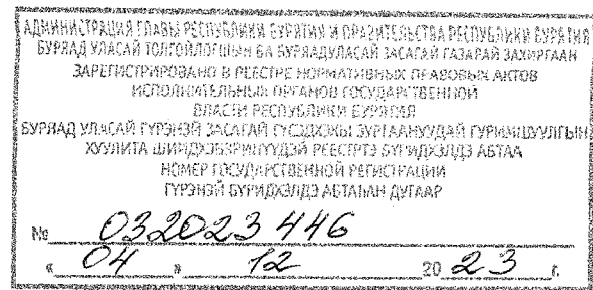 АДМИНИСТРАЦИЯ ГЛАВЫ РЕСПУБЛИКИ БУРЯТИЯ И ПРАВИТЕЛЬСТВА РЕСПУБЛИКИ БУРЯТИЯ
БУРЯАД УЛАСАЙ ТОЛГОЙЛОГШЫН БА БУРЯАД УЛАСАЙ ЗАСАГАЙ ГАЗАРАЙ ЗАХИРГААН
ЗАРЕГИСТРИРОВАНО В РЕЕСТРЕ НОРМАТИВНЫХ ПРАВОВЫХ АКТОВ
ИСПОЛНИТЕЛЬНЫХ ОРГАНОВ ГОСУДАРСТВЕННОЙ
ВЛАСТИ РЕСПУБЛИКИ БУРЯТИЯ
БУРЯАД УЛАСАЙ ГҮРЭНЭЙ ЗАСАГАЙ ГҮЙСЭДХЭХЫ ЗУРГААНУУДАЙ ГУРИМШУУЛГЫН
ХУУЛИТА РЕЕСТРТЭ БҮРИДХЭЛДЭ АБТАА
НОМЕР ГОСУДАРСТВЕННОЙ РЕГИСТРАЦИИ
ГҮРЭНЭЙ БҮРИДХЭЛДЭ АБТАҺАН ДУГААР
№ 032023446
« 04 » 12 20 23 г.